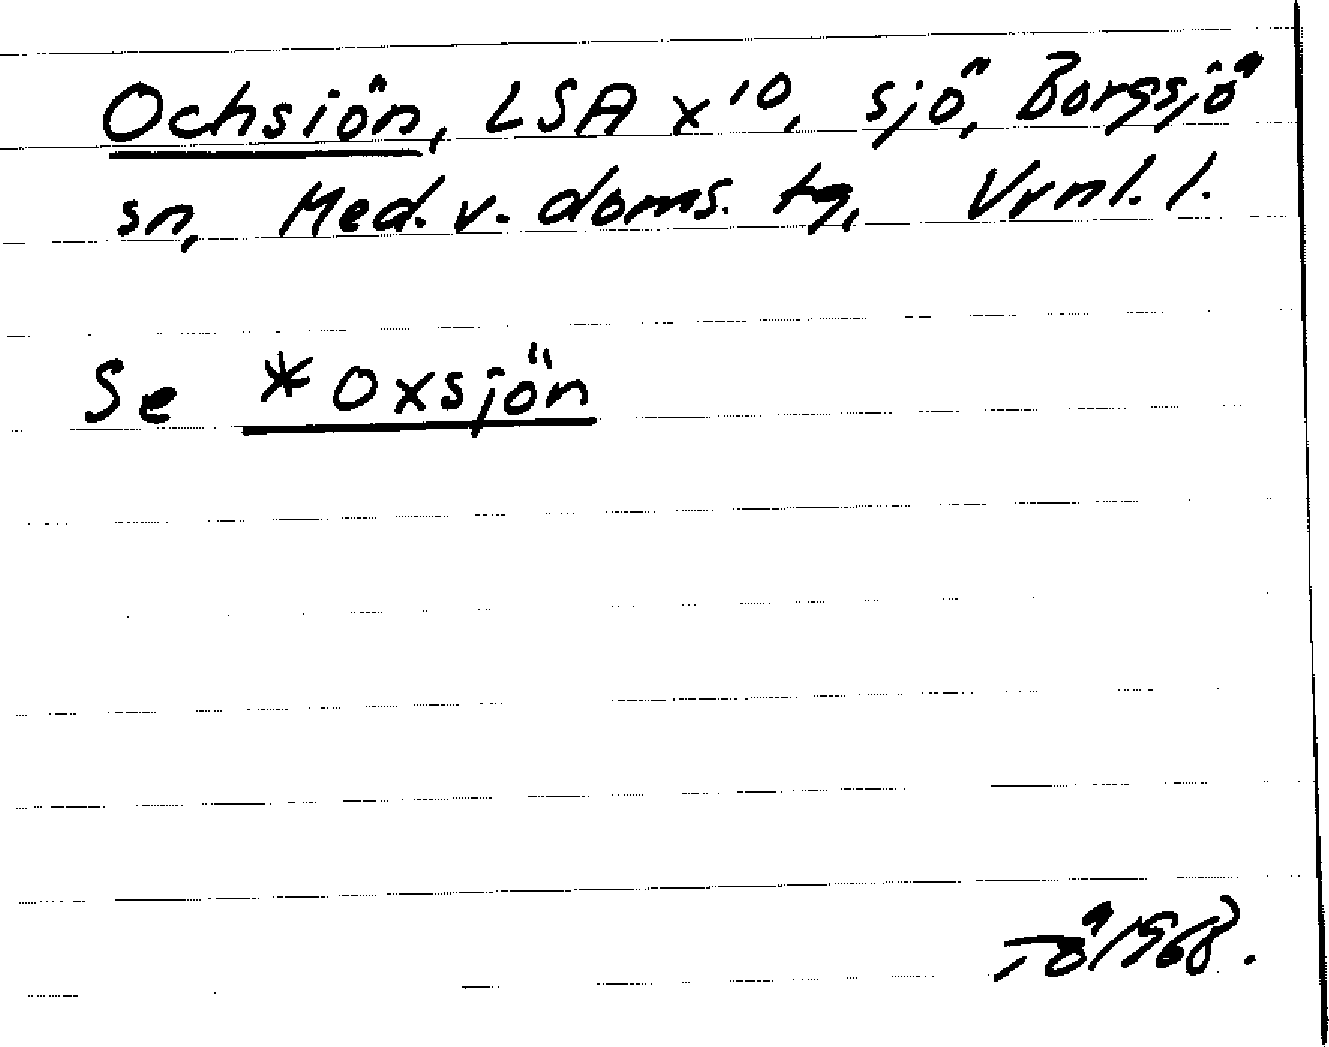 Ochsiön, LSA x¹⁰, sjö, Borgsjö
sn, Med. v. doms. tg, Vrnl. l.
Se *Oxsjön
Tö 1968.